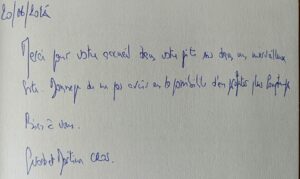 20/06/2012
Merci pour votre accueil dans votre gîte sis dans un merveilleux
site. Dommage de ne pas avoir eu la possibilité d'en profiter plus longtemps
Bien à vous.
CROS.